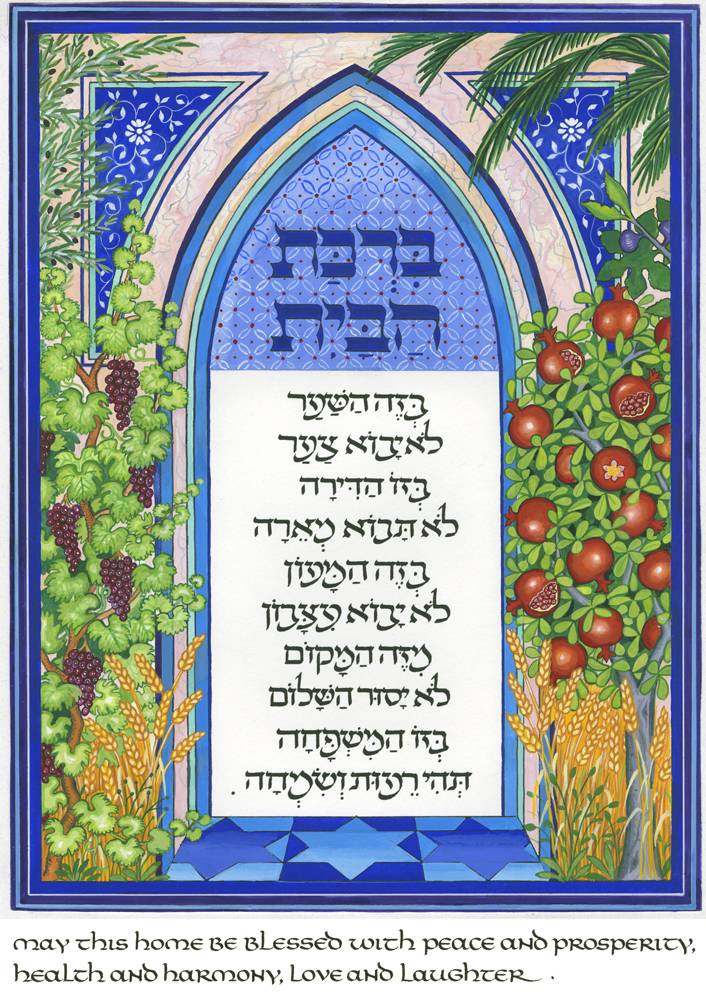 בִּרְכַּת
הַבַּיִת
בְּזֶה הַשַּׁעַר
לֹא יָבוֹא צַעַר
בְּזוֹ הַדִּירָה
לֹא תָּבוֹא מְאֵרָה
בְּזֶה הַמָּעוֹן
לֹא יָבוֹא עִצָּבוֹן
מִזֶּה הַמָּקוֹם
לֹא יָסוּר הַשָּׁלוֹם
בְּזוֹ הַמִּשְׁפָּחָה
תְּהִי רֵעוּת וְשִׂמְחָה.
may this home be blessed with peace and prosperity,
health and harmony, love and laughter.